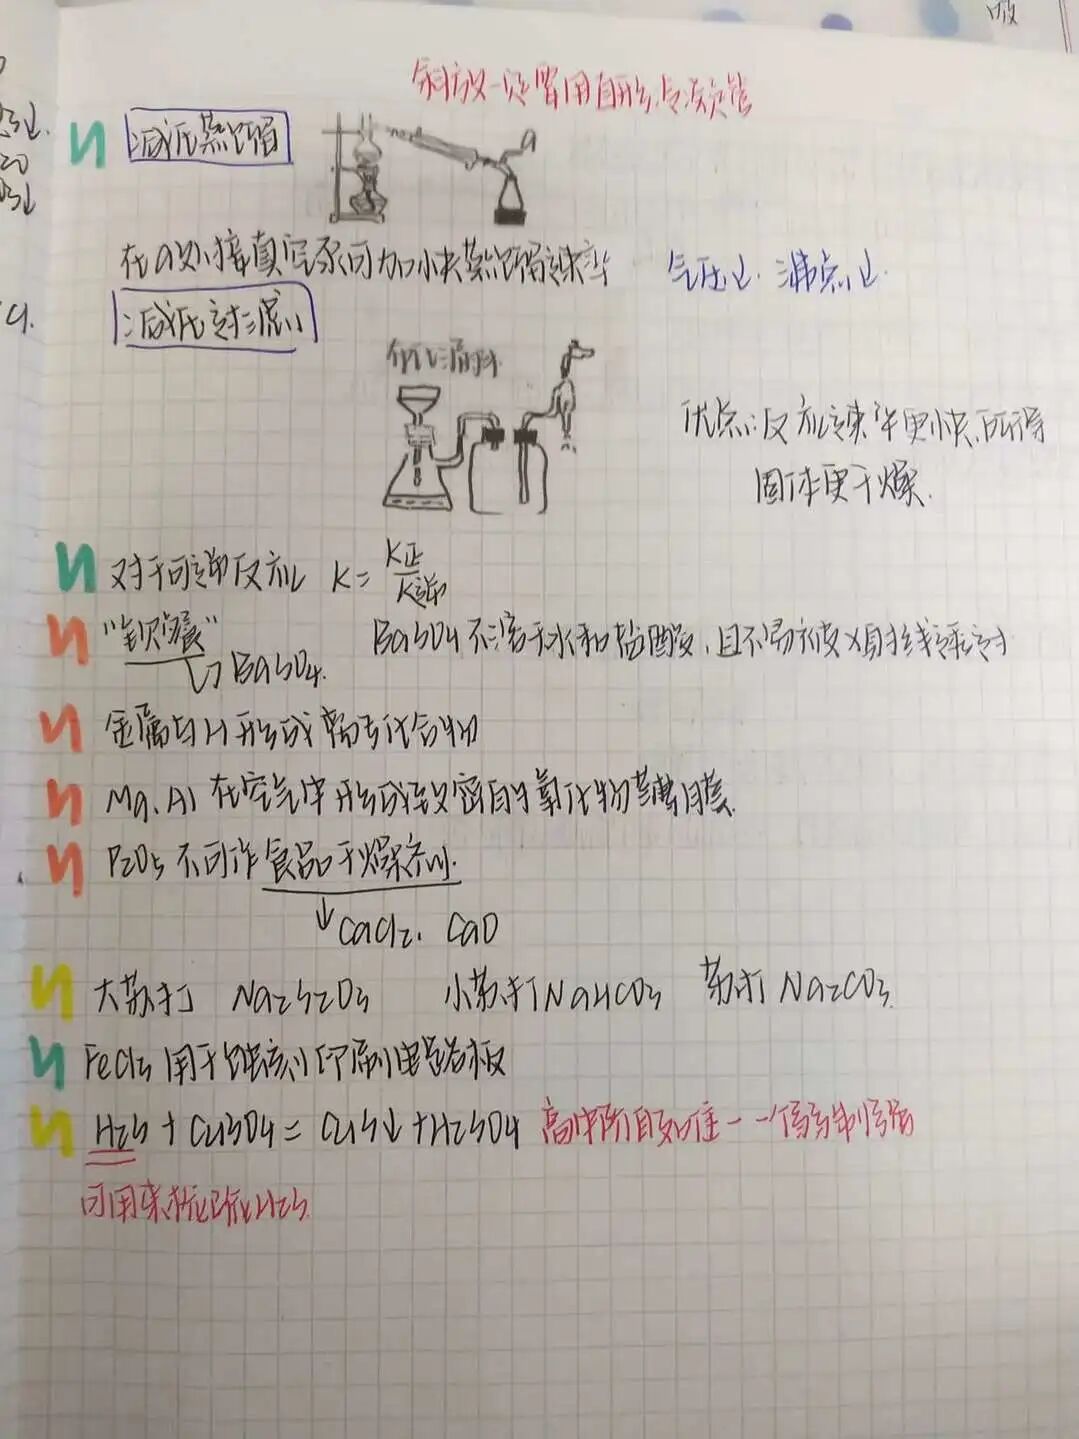 斜放一定要用直形冷凝管
减压蒸馏
a
在a处接真空泵可加快蒸馏速率 气压↓. 沸点↓.
减压过滤
布氏漏斗.
优点:反应速率更快,所得
固体更干燥.
对于可逆反应 K=K正/K逆
"钡餐" BaSO4不溶于水和盐酸,且不易被X射线透过
↳BaSO4.
金属与H形成离子化合物
Mg.Al 在空气中形成致密的氧化物薄膜.
P2O5 不可作食品干燥剂.
↓CaCl2. CaO
大苏打 Na2S2O3 小苏打NaHCO3 苏打 Na2CO3.
FeCl3 用于蚀刻印刷电路板
H2S + CuSO4 = CuS↓ + H2SO4 高中阶段唯一一个弱制强
可用来检验H2S.